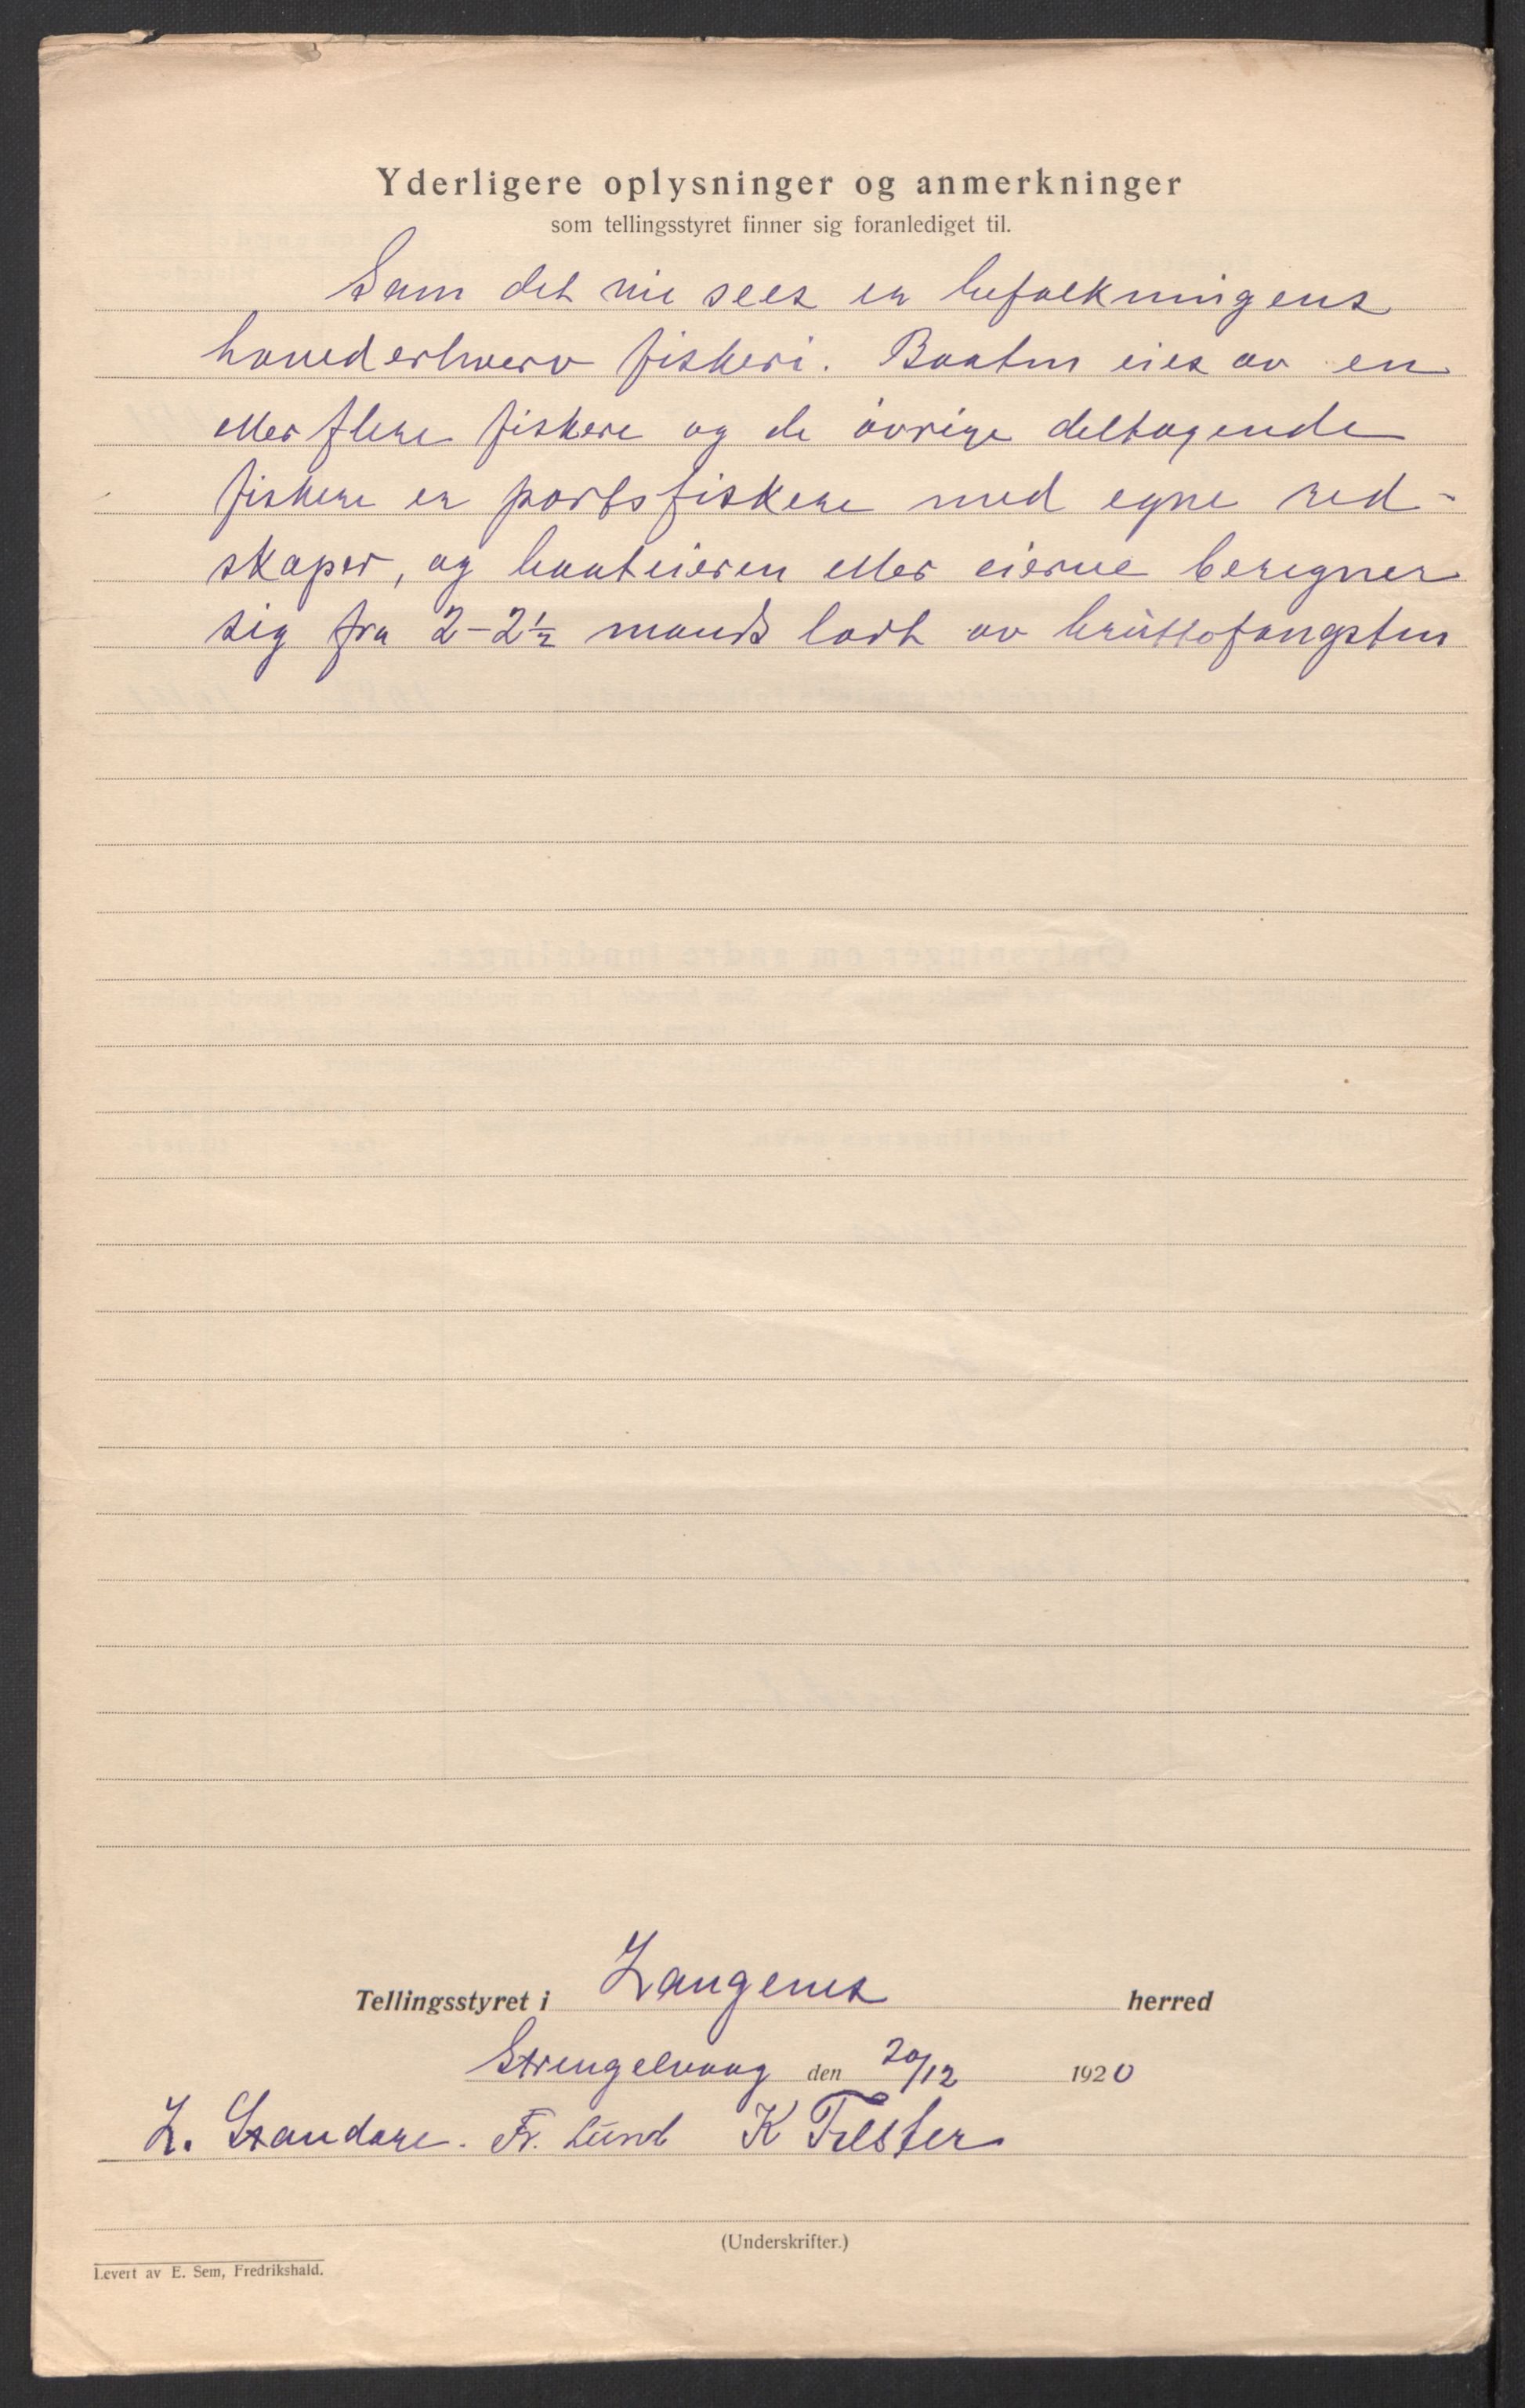 Yderligere oplysninger og anmerkninger
som tellingsstyret finner sig foranlediget til.
Som det vil sees er befolkningens
hovederhverv fiskeri. Baaten eies av en
eller flere fiskere og de øvrige deltagende
fiskere er partsfiskere med egne red-
skaper, og baateieren eller eierne beregner
sig fra 2-2½ mands lodt av bruttofangsten
Tellingsstyret i Langenes herred
Strengelvaag den 20/12 1920
L. Fr. Lund K
(Underskrifter.)
Levert av E. Sem, Fredrikshald.